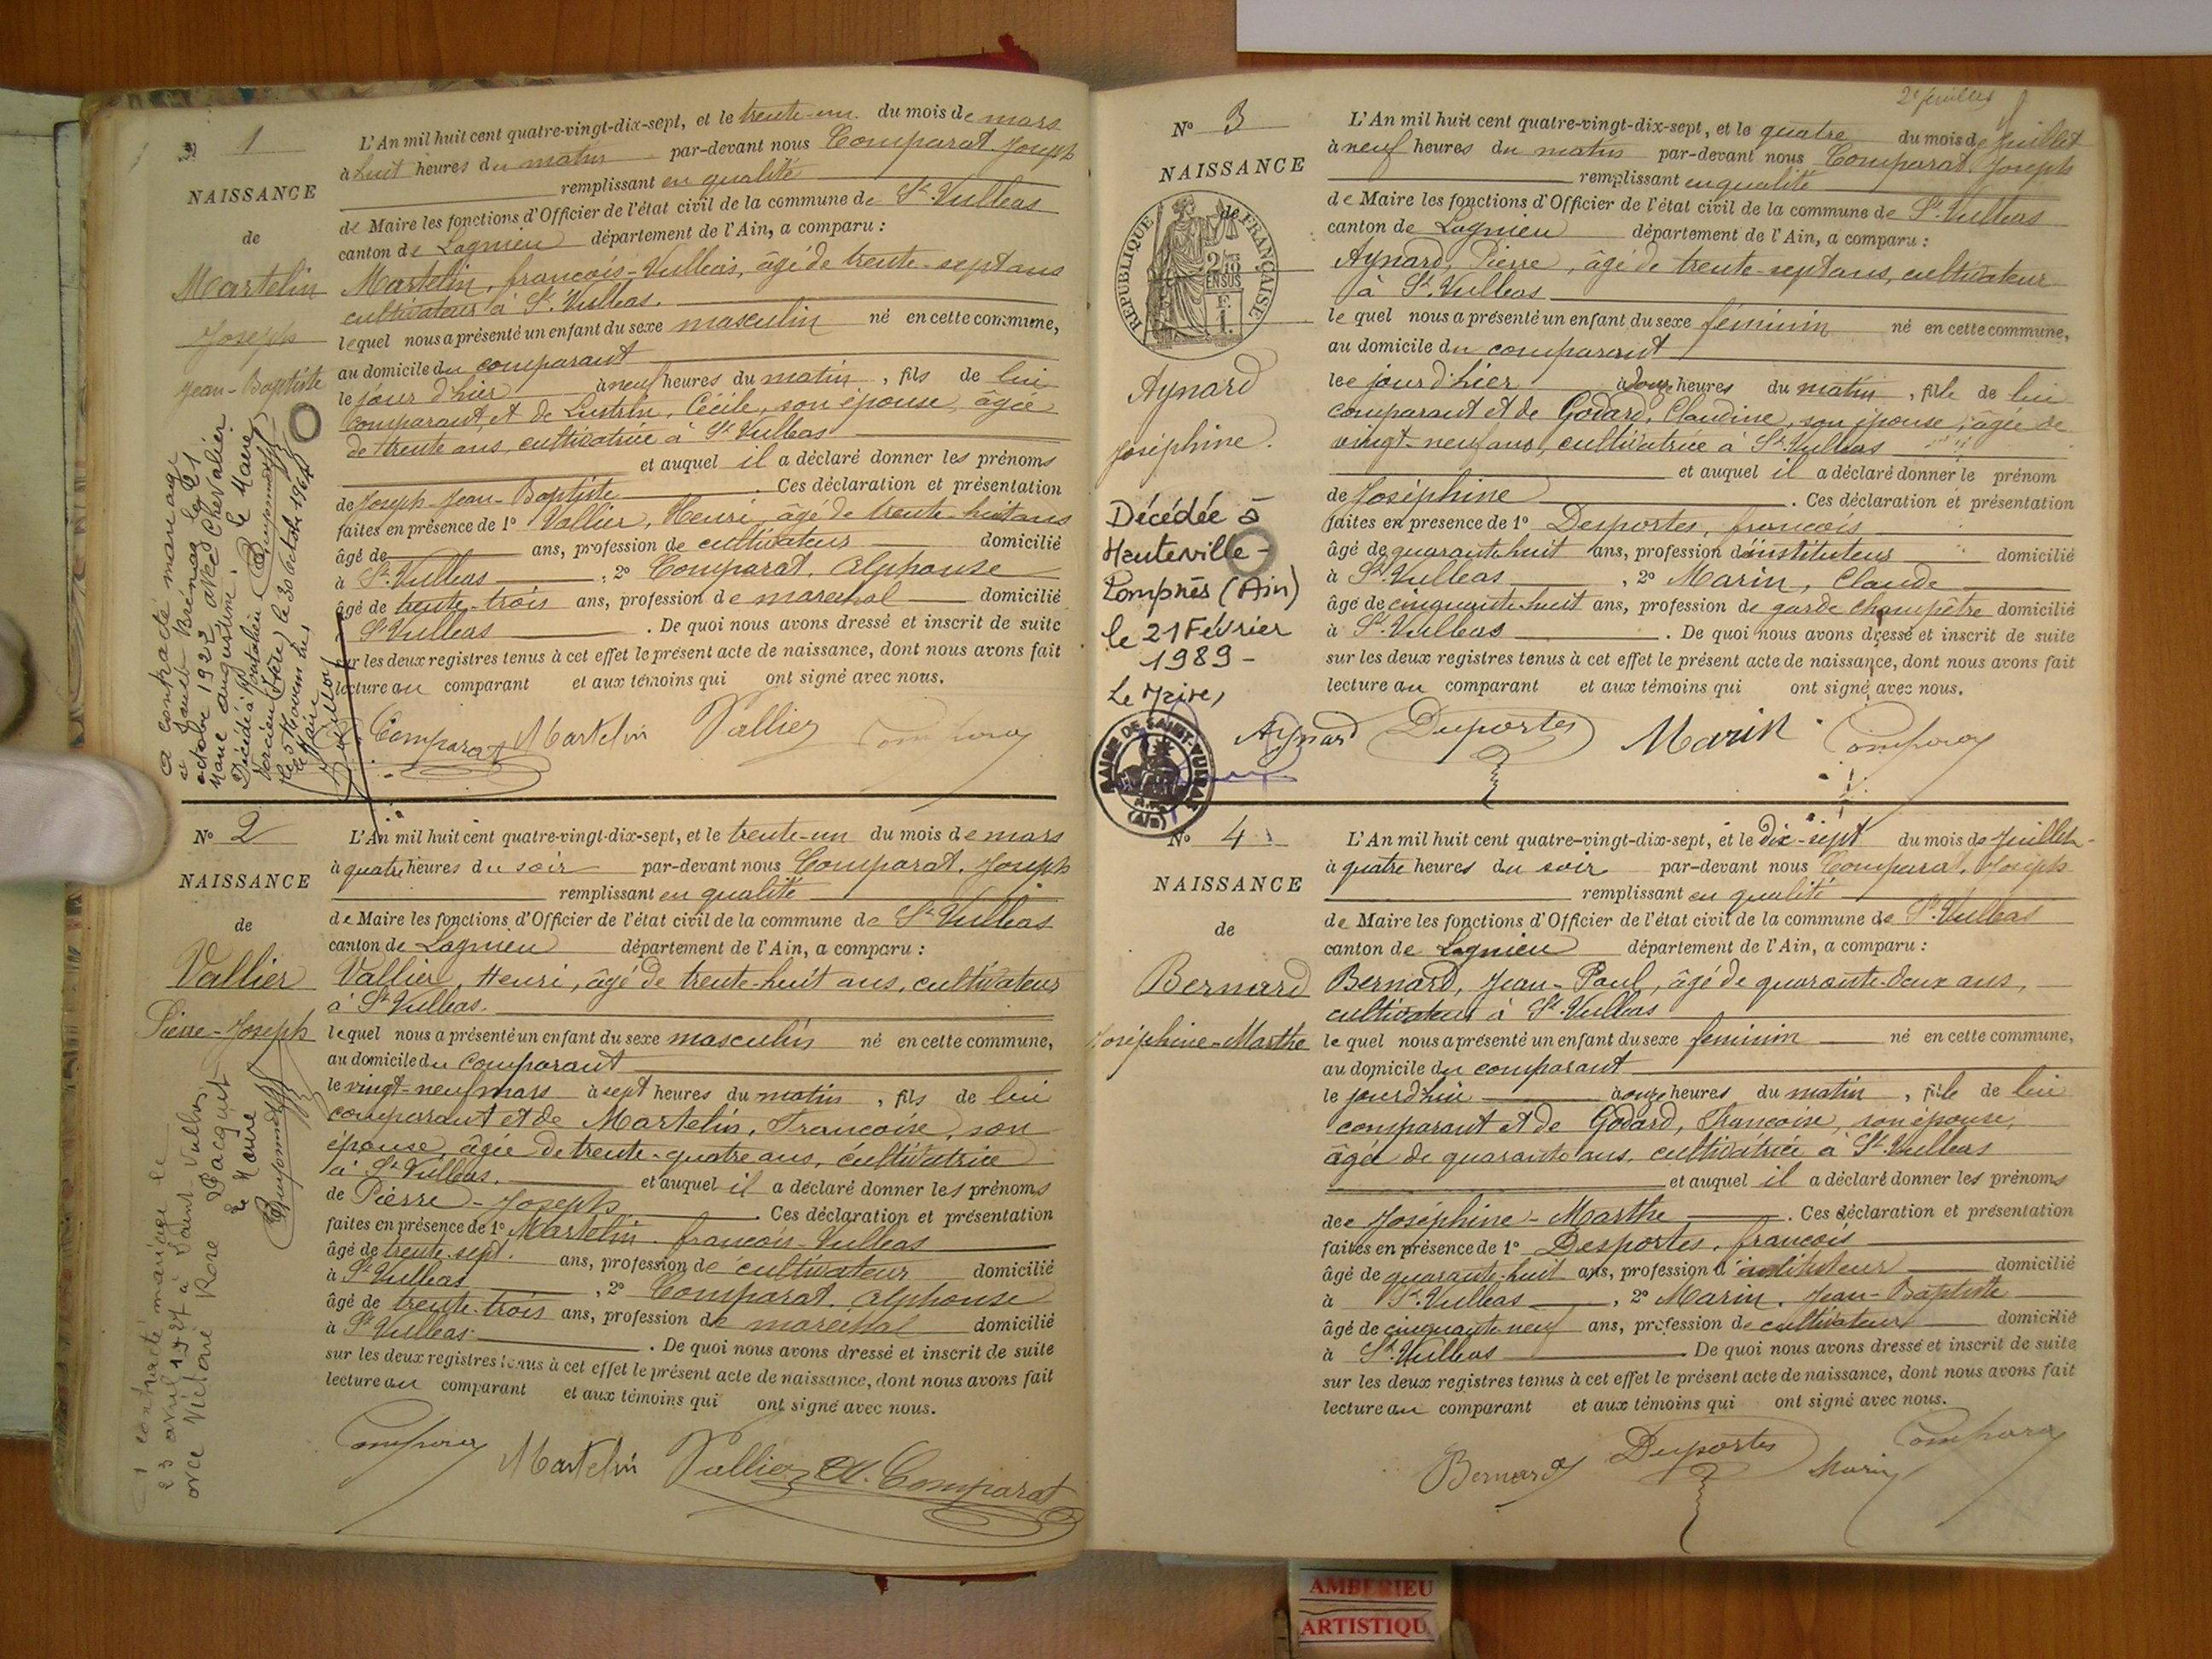 N° 1
NAISSANCE
de
Martelin
Joseph
Jean-Baptiste
a contracté mariage
à
octobre 1922 avec Chevalier
Marie augustine. Le Maire,
Décédé à
le 30 octobre 1964
le Maire
L'An mil huit cent quatre-vingt-dix-sept, et le trente-un du mois de mars
à huit heures du matin par-devant nous Comparat Joseph
remplissant en qualité
de Maire les fonctions d'Officier de l'état civil de la commune de St. Vulbas
canton de Lagnieu département de l'Ain, a comparu :
Martelin, francois-Vulbas, âgé de trente-sept ans
cultivateur à St. Vulbas.
lequel nous a présenté un enfant du sexe masculin né en cette commune,
au domicile du comparant
le jour d'hier à neuf heures du matin, fils de lui
comparant, et de Lustrin, Cécile, son épouse, âgée
de trente ans, cultivatrice à St. Vulbas
et auquel il a déclaré donner les prénoms
de Joseph-Jean-Baptiste. Ces déclaration et présentation
faites en présence de 1° Vallier, Henri, âgé de trente-huit ans
âgé de ans, profession de cultivateur domicilié
à St. Vulbas, 2° Comparat, Alphonse
âgé de trente-trois ans, profession de marechal domicilié
St Vulbas. De quoi nous avons dressé et inscrit de suite
sur les deux registres tenus à cet effet le présent acte de naissance, dont nous avons fait
lecture au comparant et aux témoins qui ont signé avec nous.
Comparat Martelin Vallier Comparat
N° 2
NAISSANCE
de
Vallier
Pierre-Joseph
a contracté mariage le
23 avril 1927 à Saint-Vulbas
avec Victorine Rose Jacquet
Le Maire
L'An mil huit cent quatre-vingt-dix-sept, et le trente-un du mois de mars
à quatre heures du soir par-devant nous Comparat, Joseph
remplissant en qualité
de Maire les fonctions d'Officier de l'état civil de la commune de St. Vulbas
canton de Lagnieu département de l'Ain, a comparu :
Vallier, Henri, âgé de trente-huit ans, cultivateur
à St Vulbas.
lequel nous a présenté un enfant du sexe masculin né en cette commune,
au domicile du comparant
le vingt-neuf mars à sept heures du matin, fils de lui
comparant et de Martelin, Francoise, son
épouse, âgée de trente-quatre ans, cultivatrice
à St Vulbas. et auquel il a déclaré donner les prénoms
de Pierre-Joseph. Ces déclaration et présentation
faites en présence de 1° Martelin, francois-Vulbas
âgé de trente-sept. ans, profession de cultivateur domicilié
à St Vulbas, 2° Comparat, Alphonse
âgé de trente-trois ans, profession de marechal domicilié
à St Vulbas. De quoi nous avons dressé et inscrit de suite
sur les deux registres tenus à cet effet le présent acte de naissance, dont nous avons fait
lecture au comparant et aux témoins qui ont signé avec nous.
Comparat Martelin Vallier A. Comparat
2e feuillet
N° 3
NAISSANCE
de
REPUBLIQUE FRANÇAISE
2/10 EN SUS
Aynard
Joséphine.
Décédée à
Hauteville-
Lompnès (Ain)
le 21 Février
1989 -
Le Maire,
MAIRIE DE SAINT-VULBAS
(Ain)
L'An mil huit cent quatre-vingt-dix-sept, et le quatre du mois de Juillet
à neuf heures du matin par-devant nous Comparat, Joseph
remplissant en qualité
de Maire les fonctions d'Officier de l'état civil de la commune de St. Vulbas
canton de Lagnieu département de l'Ain, a comparu :
Aynard, Pierre, âgé de trente-sept ans, cultivateur
à St. Vulbas
lequel nous a présenté un enfant du sexe féminin né en cette commune,
au domicile du comparant
lee jour d'hier à onze heures du matin, fille de lui
comparant et de Godard, Claudine, son épouse, âgée de
vingt-neuf ans, cultivatrice à St. Vulbas
et auquel il a déclaré donner le prénom
de Joséphine. Ces déclaration et présentation
faites en présence de 1° Desportes, francois
âgé de quarante-huit ans, profession d'instituteur domicilié
à St. Vulbas, 2° Marin, Claude
âgé de cinquante-huit ans, profession de garde champêtre domicilié
à St. Vulbas. De quoi nous avons dressé et inscrit de suite
sur les deux registres tenus à cet effet le présent acte de naissance, dont nous avons fait
lecture au comparant et aux témoins qui ont signé avec nous.
Aynard Desportes Marin Comparat
N° 4
NAISSANCE
de
Bernard
Joséphine-Marthe
L'An mil huit cent quatre-vingt-dix-sept, et le dix-sept du mois de Juillet
à quatre heures du soir par-devant nous Comparat, Joseph
remplissant en qualité
de Maire les fonctions d'Officier de l'état civil de la commune de St. Vulbas
canton de Lagnieu département de l'Ain, a comparu :
Bernard, Jean-Paul, âgé de quarante-deux ans,
cultivateur à St. Vulbas
lequel nous a présenté un enfant du sexe féminin né en cette commune,
au domicile du comparant
le jourd'hui à onze heures du matin, fille de lui
comparant et de Godard, Francoise, son épouse,
âgée de quarante ans, cultivatrice à St. Vulbas
et auquel il a déclaré donner les prénoms
dee Joséphine-Marthe. Ces déclaration et présentation
faites en présence de 1° Desportes, francois
âgé de quarante-huit ans, profession d'instituteur domicilié
à St. Vulbas, 2° Marin, Jean-Baptiste
âgé de cinquante neuf ans, profession de cultivateur domicilié
à St. Vulbas. De quoi nous avons dressé et inscrit de suite
sur les deux registres tenus à cet effet le présent acte de naissance, dont nous avons fait
lecture au comparant et aux témoins qui ont signé avec nous.
Bernard Desportes Marin Comparat
AMBERIEU
ARTISTIQU